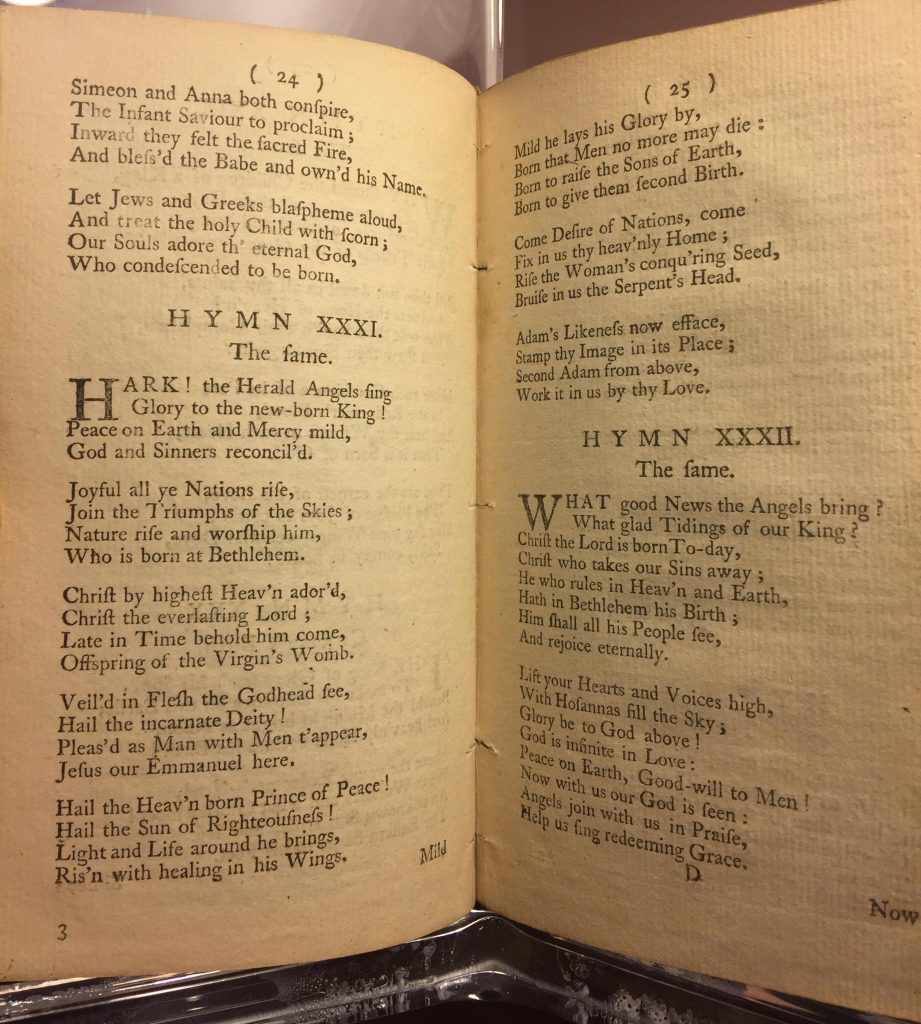 ( 24 )
Simeon and Anna both conſpire,
The Infant Saviour to proclaim ;
Inward they felt the ſacred Fire,
And bleſs'd the Babe and own'd his Name.
Let Jews and Greeks blaſpheme aloud,
And treat the holy Child with ſcorn ;
Our Souls adore th' eternal God,
Who condeſcended to be born.
HYMN XXXI.
The ſame.
HARK! the Herald Angels ſing
Glory to the new-born King !
Peace on Earth and Mercy mild,
God and Sinners reconcil'd.
Joyful all ye Nations riſe,
Join the Triumphs of the Skies ;
Nature riſe and worſhip him,
Who is born at Bethlehem.
Chriſt by higheſt Heav'n ador'd,
Chriſt the everlaſting Lord ;
Late in Time behold him come,
Offspring of the Virgin's Womb.
Veil'd in Fleſh the Godhead ſee,
Hail the incarnate Deity !
Pleas'd as Man with Men t'appear,
Jeſus our Emmanuel here.
Hail the Heav'n born Prince of Peace !
Hail the Sun of Righteouſneſs !
Light and Life around he brings,
Ris'n with healing in his Wings.
Mild
3
( 25 )
Mild he lays his Glory by,
Born that Men no more may die :
Born to raiſe the Sons of Earth,
Born to give them ſecond Birth.
Come Deſire of Nations, come
Fix in us thy heav'nly Home ;
Riſe the Woman's conqu'ring Seed,
Bruiſe in us the Serpent's Head.
Adam's Likeneſs now efface,
Stamp thy Image in its Place ;
Second Adam from above,
Work it in us by thy Love.
HYMN XXXII.
The ſame.
WHAT good News the Angels bring ?
What glad Tidings of our King ?
Chriſt the Lord is born To-day,
Chriſt who takes our Sins away ;
He who rules in Heav'n and Earth,
Hath in Bethlehem his Birth ;
Him ſhall all his People ſee,
And rejoice eternally.
Lift your Hearts and Voices high,
With Hoſannas fill the Sky ;
Glory be to God above !
God is infinite in Love :
Peace on Earth, Good-will to Men !
Now with us our God is ſeen :
Angels join with us in Praiſe,
Help us ſing redeeming Grace.
D
Now